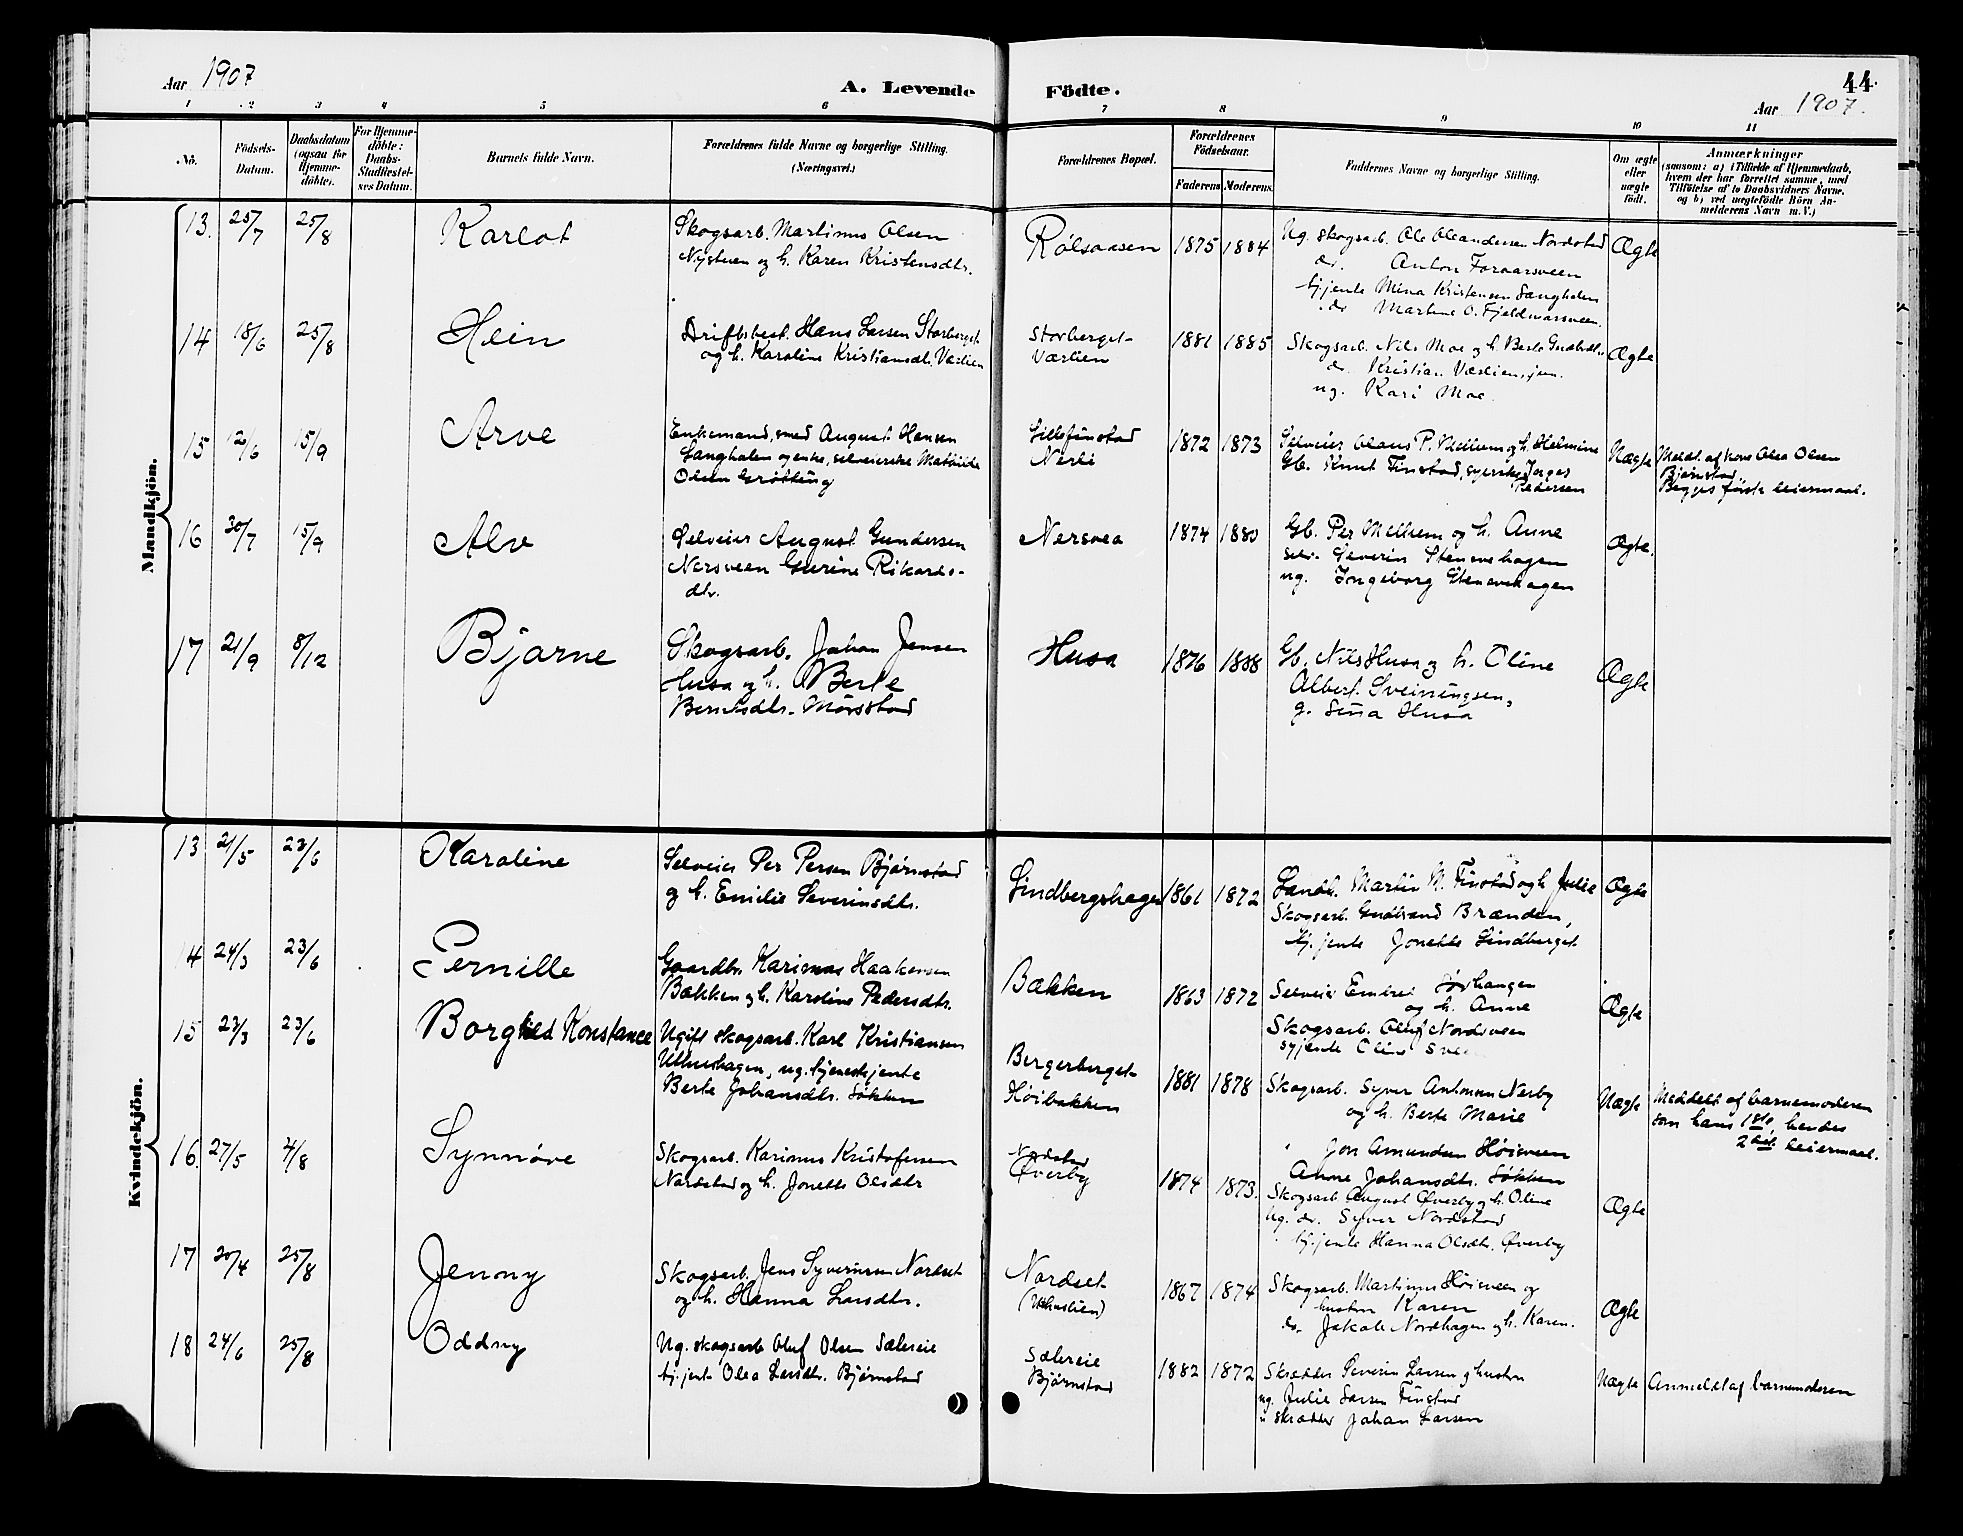 Aar 1907
A. Levende Födte.
44.
Aar 1907.
1 2 3 4 5 6 7 8 9 10 11
No.
Födsels-Datum.
Daabsdatum (ogsaa for Hjemme-döbte).
For Hjemme-döbte: Daabs-Stadfæstel-ses Datum.
Barnets fulde Navn.
Forældrenes fulde Navne og borgerlige Stilling. (Næringsvei.)
Forældrenes Bopæl.
Forældrenes Födselsaar.
Faderens Moderens
Faddernes Navne og borgerlige Stilling.
Om ægte eller uægte födt.
Anmærkninger
(saasom: a) i Tilfælde af Hjemmedaab,
hvem der har forrettet samme, med
Tilföielse af to Daabsvidners Navne,
og b) ved uægtefödte Börn An-
melderens Navn m. V.)
Mandkjön.
13. 25/7 25/8 Karlot
Skogsarb. Martinus Olsen
Nystuen og h. Karen Kristensdtr.
Rölsaasen 1875 1884
Ug. skogsarb. Ole Oleandersen Nordstad
do. Anton Foraarsveen
tj.jente Mina Kristensen Langholen
do Martine O. Fjeldvarsveen.
Ægte
14 18/6 25/8 Hein
Driftsbest. Hans Larsen Storberget
og h. Karoline Kristiansdtr. Værlien
Storberget-
Værlien
1881 1885
Skogsarb. Nils Moe og h. Berte
do. Kristian Værlien, jun.
ug. Kari Moe.
Ægte
15 12/6 15/9 Arve
Enkemand, smed August Hansen
Langholen og enke, selveierske Mathilde
Olsen Grötting
Lillefinstad
Nerli
1872 1873
Selveier Olaus P. Melhem og h. Helmine
Gb. Knut Finstad, syerske Inges
Pedersen
Uægte
Meldt af kone Olea Olsen
Bjørnstad
Begges første leiermaal.
16 30/7 15/9 Alv
Selveier August Gundersen
Nersveen Gurine Rikards-
dtr.
Nersvea 1874 1880
Gb. Per Melhem og h. Anne
selv. Severin Stenevehagen
ug. Ingeborg Stenevehagen
Ægte.
17 21/9 8/12 Bjarne
Skogsarb. Johan Jensen
Husa og h. Berte
Berntsdtr. Mørstad
Husa 1876 1888
Gb. Nils Husa og h. Oline
Albert Sveinungsen,
g. Sina Husa
Ægte
Kvindekjön.
13 21/5 23/6 Karoline
Selveier Per Persen Bjørnstad
og h. Emilie Severinsdtr.
Lindbergshagen 1861 1872
Landh. Martin M. Finstad og h Julie
Skogsarb. Gudbrand Brænden,
tj. jente Jonette Lindberget
Ægte
14 24/3 23/6 Pernille
Gaardbr. Karinus Haakensen
Bækken og h. Karoline Pedersdtr.
Bækken 1863 1872
Selveier Embret Sørhangen
og h. Anne
Skogsarb. Oluf Nordsveen
syjente Oline
Ægte
15 23/3 23/6 Borghild Konstance
Ugift skogsarb. Karl Kristiansen
Ulhushagen, ug. tjenestejente
Berte Johansdtr. Løkken
Bergerberget-
Høibakken
1881 1878
Skogsarb. Syver Antonsen Nerby
og h. Berte Marie
" Jon Amundsen Høiveen
Anne Johansdtr. Løkken
Uægte
Meddelt af barnemoderen
som hans 1ste, hendes
2det leiermaal.
16. 27/5 4/8 Synnöve
Skogsarb. Karinus Kristofersen
Nordstad og h. Jonette Olsdtr
Nordstad
Øverby
1874 1873.
Skogsarb August Øverby og h. Oline
Ug. do. Syver Nordstad
tj.jente Hanna Olsdtr. Øverby
Ægte
17 20/4 25/8 Jenny
Skogsarb. Jens Syversen Nordset
og h. Hanna Larsdtr.
Nordset
(Ulhuslien)
1867 1874
Skogsarb. Martinus Høiveen og
hustru Karen
do. Jakob Nordhagen og h. Karen.
Ægte
18 24/6 25/8 Oddny
Ug. skogsarb Oluf Olsen Sætereie
tj.jente Olea Larsdtr. Bjørnstad
Sætereie
Bjørnstad
1882 1872
Skrædder Severin Larsen og hustru
ug. Julie Larsen Finstad
" skrædder Johan Larsen
Uægte
Anmeldt af barnemoderen